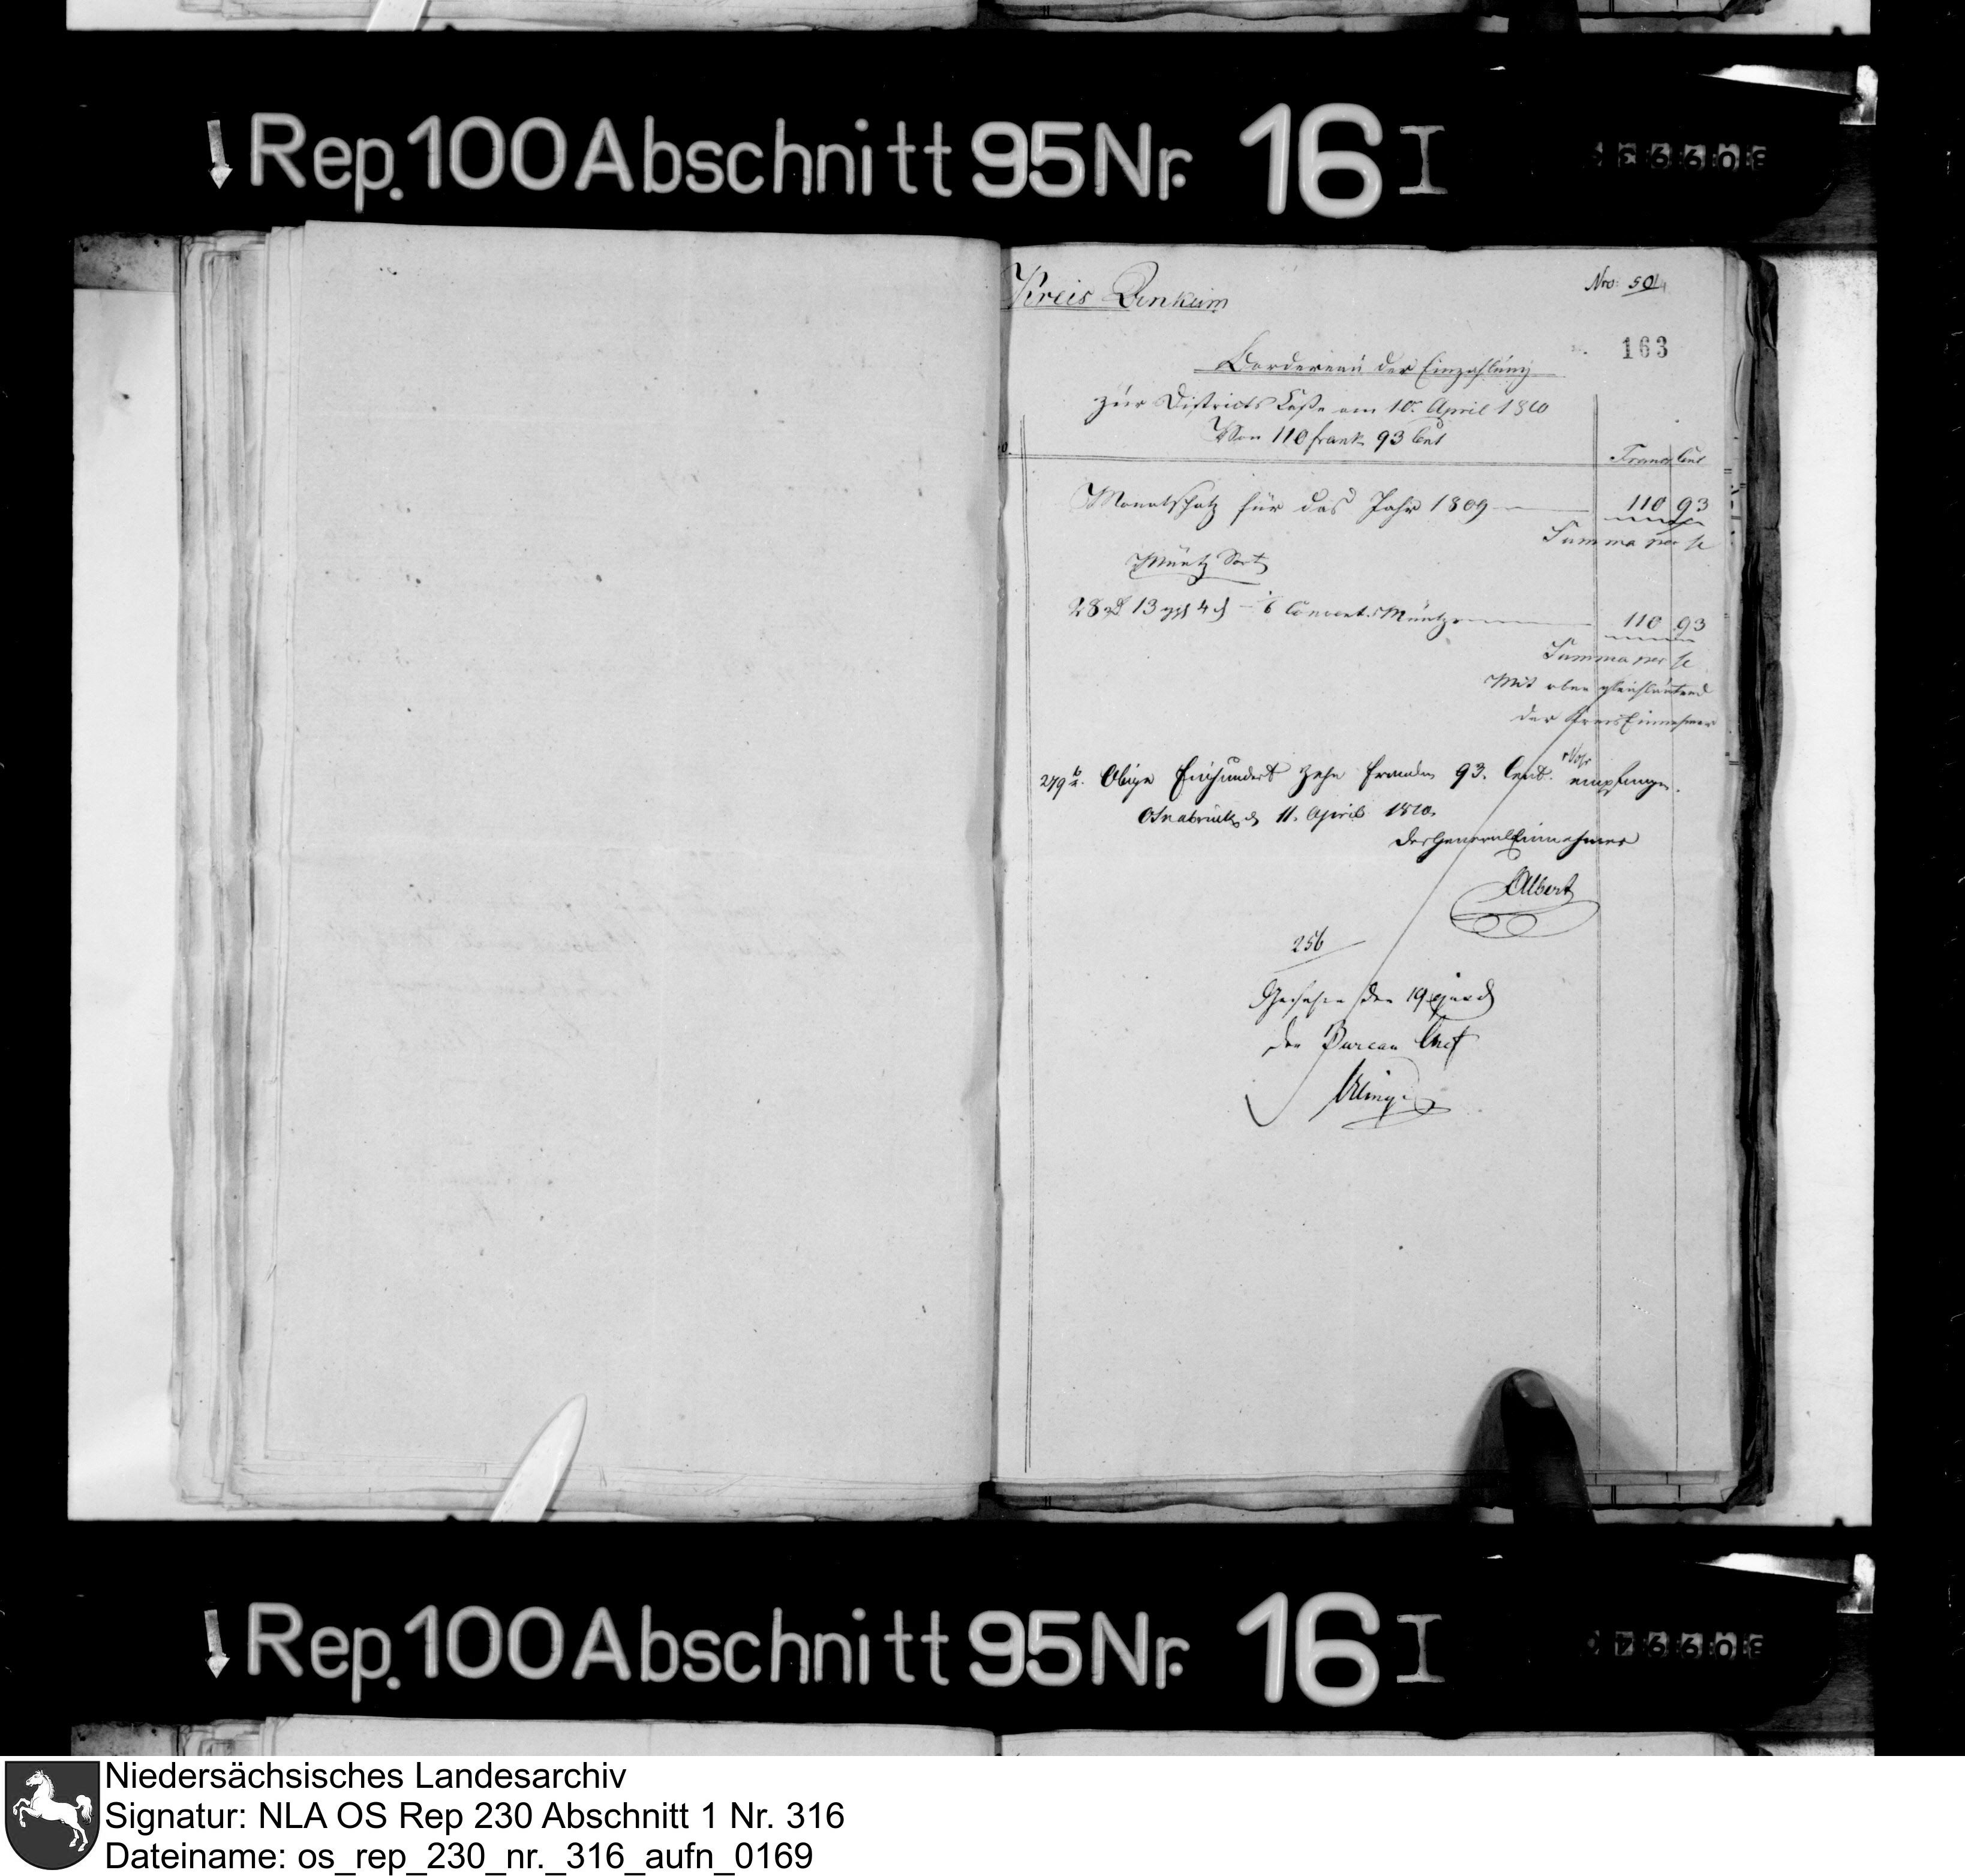 Rep. 100 Abschnitt 95 Nr. 16 I
Kreis
Nro. 504
163
Bordereau der Einzahlung
zur Districts Casse am 10t April 1810
Von 110 frank 93 Cent
Francs Cent
Monatschatz für das Jahr 1809 110 93
Summa per se
Müntz Sort
28 rth 13 ggr 4 d Convent. Müntze 110 93
Summa per se
Mit oben gleichlautend
der Kreis Einnehmer
Obige Einhundert zehn Franken 93. Cent. empfangen.
Osnabrück d 11. April 1810.
Der General Einnehmer
Albert
256
Gesehen den 19
der Bureau Chef
Rep. 100 Abschnitt 95 Nr. 16 I
Niedersächsisches Landesarchiv
Signatur: NLA OS Rep 230 Abschnitt 1 Nr. 316
Dateiname: os_rep_230_nr._316_aufn_0169